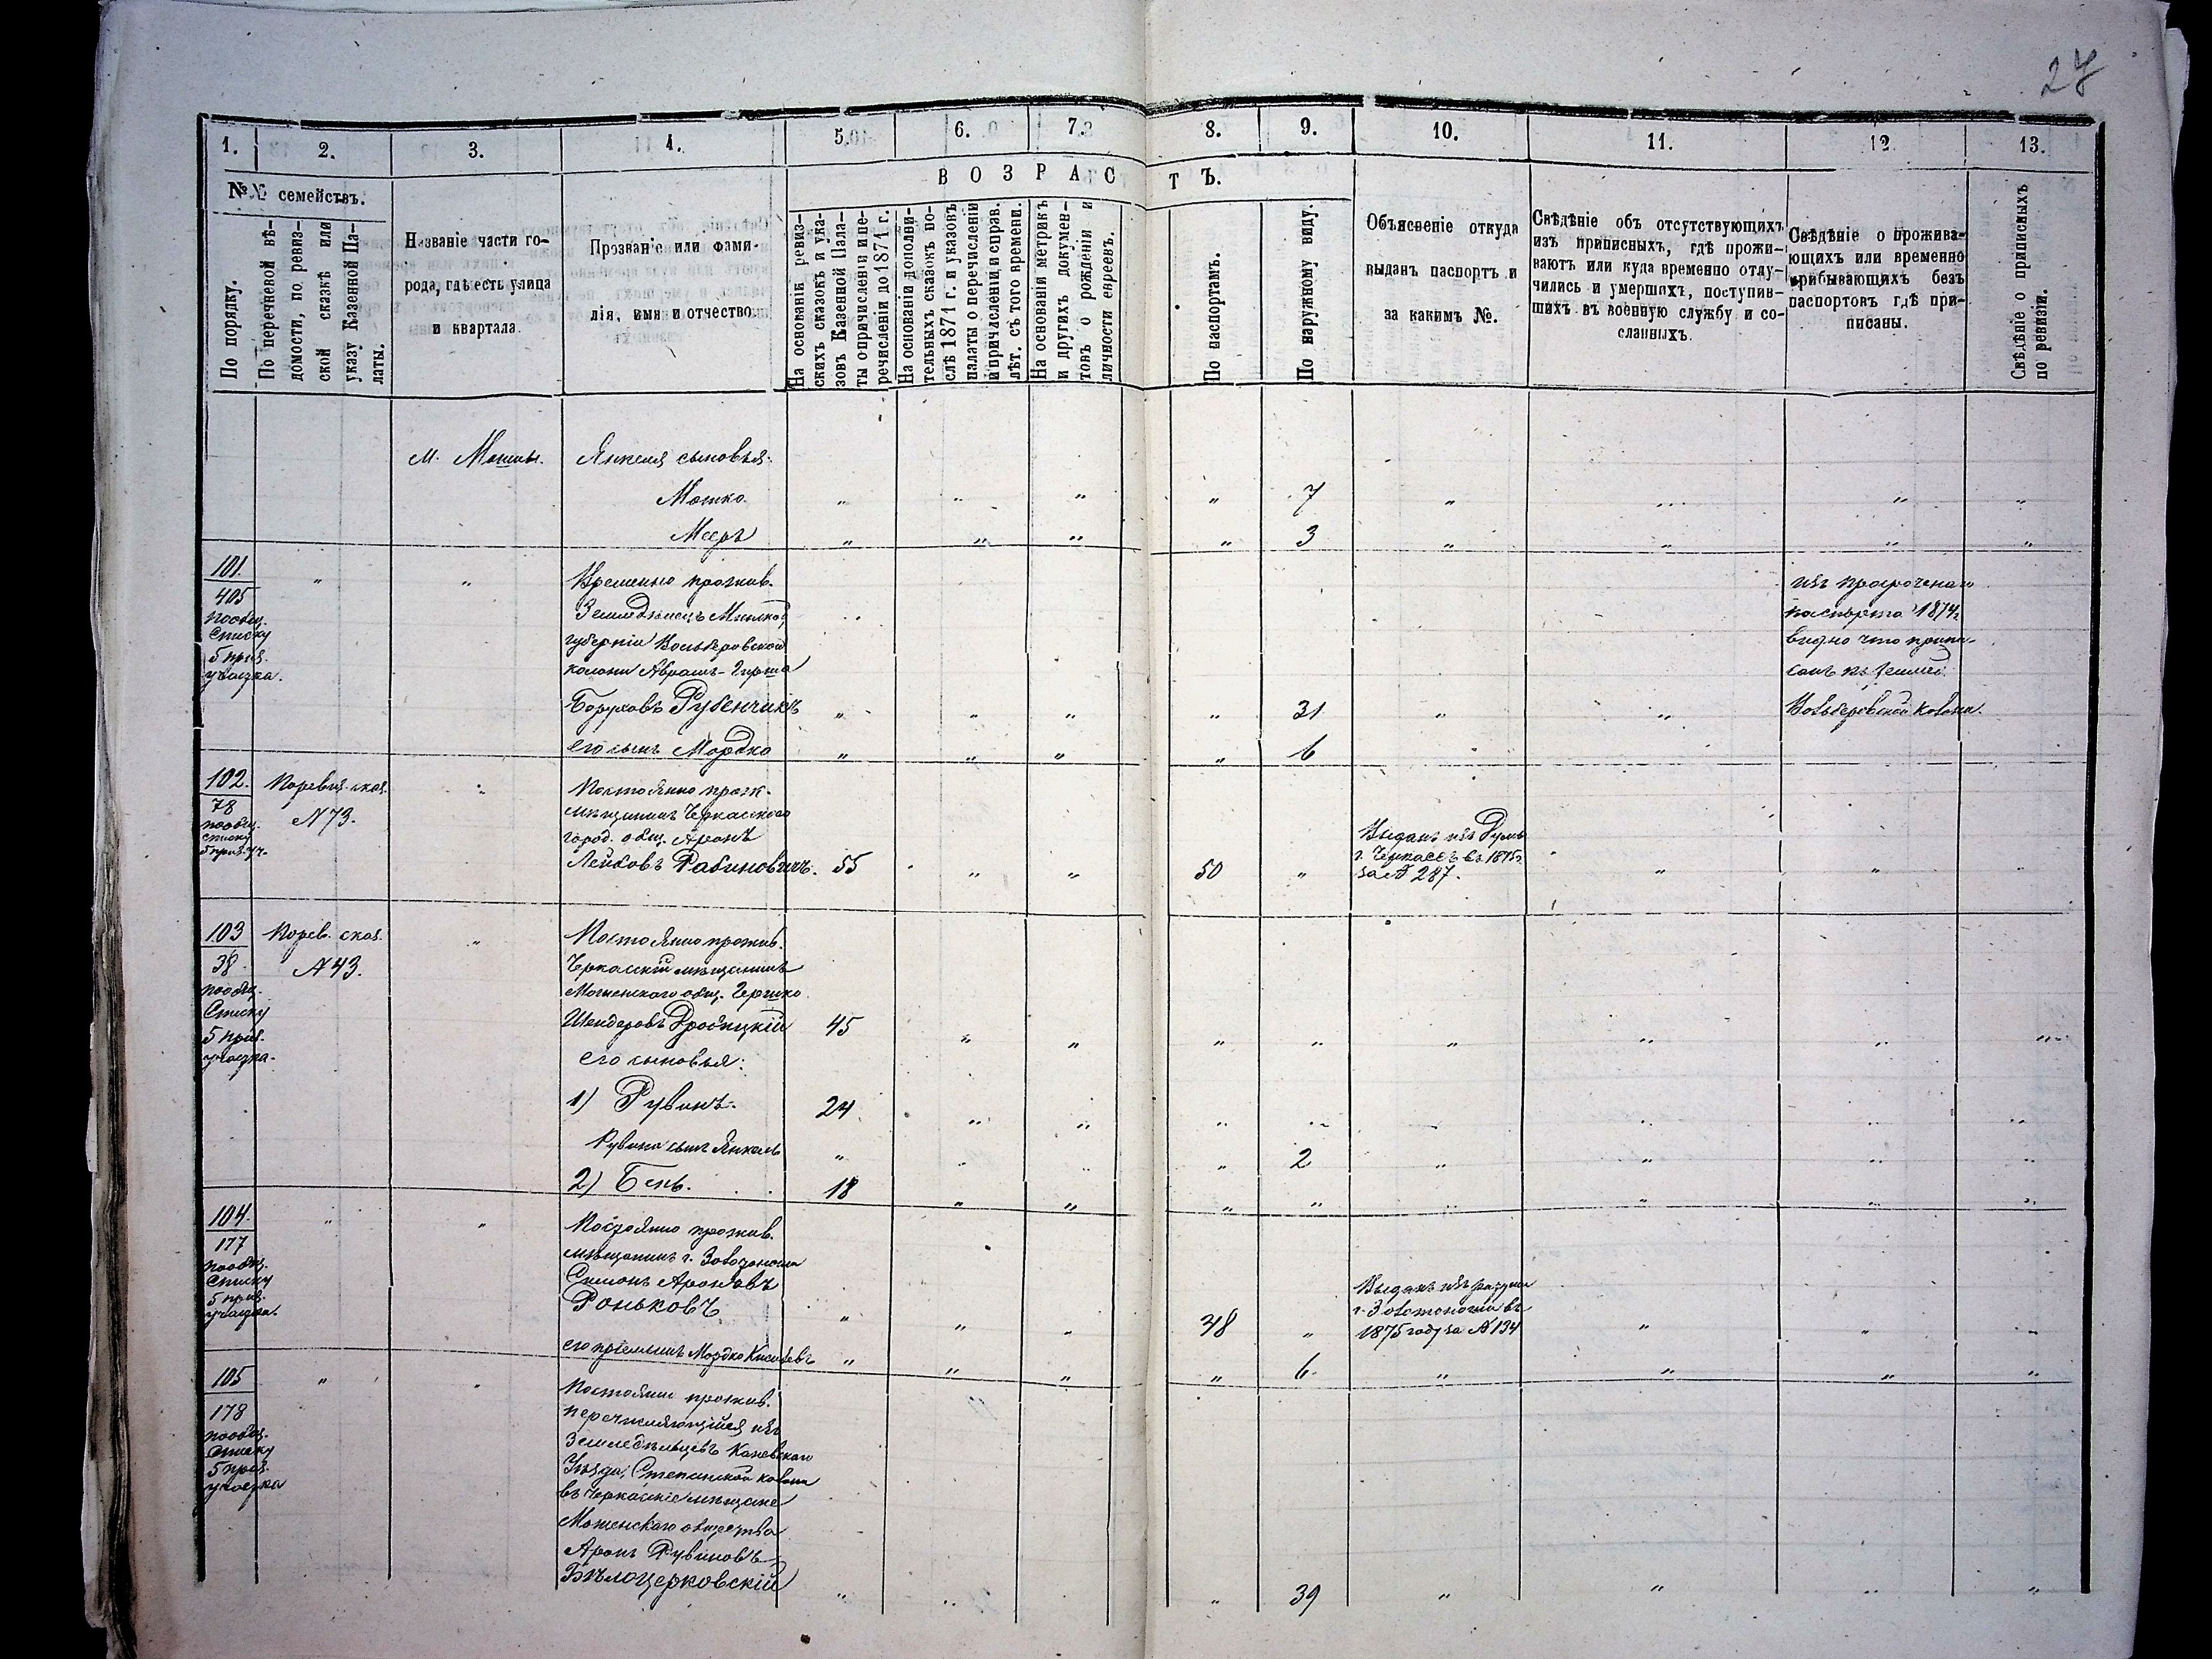 27
1. 2. 3. 4. 5. 6. 7. 8. 9. 10. 11. 12. 13.
№№ семействъ.
ВОЗРАСТЪ.
По порядку.
По перечневой вѣ-
домости, по ревиз-
ской сказкѣ или
указу Казенной Па-
латы.
Названіе части го-
рода, гдѣ есть улица
и квартала.
Прозваніе или фами-
лія, имя и отчество.
На основаніи ревиз-
скихъ сказокъ и ука-
зовъ Казенной Пала-
ты о причисленіи и пе-
речисленіи до 1871 г.
На основаніи дополни-
тельныхъ сказокъ по-
слѣ 1871 г. и указовъ
палаты о перечисленіи
и причисленіи и справ.
лѣт. съ того времени.
На основаніи метрикъ
и другихъ докумен-
товъ о рожденіи и
личности евреевъ.
По паспортамъ.
По наружному виду.
Объясненіе откуда
выданъ паспортъ и
за какимъ №.
Свѣдѣніе объ отсутствующихъ
изъ приписныхъ, гдѣ прожи-
ваютъ или куда временно отлу-
чились и умершихъ, поступив-
шихъ въ военную службу и со-
сланныхъ.
Свѣдѣніе о прожива-
ющихъ или временно
прибывающихъ безъ
паспортовъ гдѣ при-
писаны.
Свѣдѣніе о приписныхъ
по ревизіи.
м. Мошны. Янкеля сыновья:
Мошко. " " " " 7 " " " "
Мееръ " " " " 3 " " " "
101. " " Временно прожив.
405
по общ.
списку
5 приз.
участка.
Земледѣлецъ Минской
губерніи
колоніи Абрамъ-Гершка
Боруховъ Рубенчикъ " " " " 31 " "
изъ просроченаго
паспорта 1874 г.
видно что припи-
санъ къ
колон.
его сынъ Мордко " " " " 6
102. По ревиз. сказ. " Постоянно прож.
78
по общ.
списку
5 приз. уч.
№ 73.
мѣщанинъ Черкасскаго
город. общ. Аронъ
Лейбовъ Рабиновичъ. 55 " " 50 " " " "
Выданъ изъ Думы
г. Черкассъ въ 1875 г.
за № 287.
103 По рев. сказ. " Постоянно прожив.
38
по общ.
списку
5 приз.
участка.
№ 43.
Черкасскій мѣщанинъ
Мошенскаго общ. Гершко
Шендеровъ Дробицкій 45 " " " " " " " "
его сыновья:
1) Рувинъ. 24 " " " " " " " "
Рувина сынъ Янкель " " " " 2 " " " "
2) Бень. 18 " " " " " " " "
104. " " Постоянно прожив.
177
по общ.
списку
5 приз.
участка.
мѣщанинъ г. Золотоноши
Симонъ Ароновъ
Роньковъ " " " 38 " " " "
Выданъ изъ ратуши
г. Золотоноши въ
1875 году за № 134
его пріемышъ Мордко " " " " 6 " " " "
105 " " Постоянно прожив.
178
по общ.
списку
5 приз.
участка
перечисляющійся изъ
земледѣльцевъ Каневскаго
уѣзда, Степанской колоніи
въ Черкасскіе мѣщане
Мошенскаго общества
Аронъ Рувиновъ
Бѣлоцерковскій " " " 39 " " " "